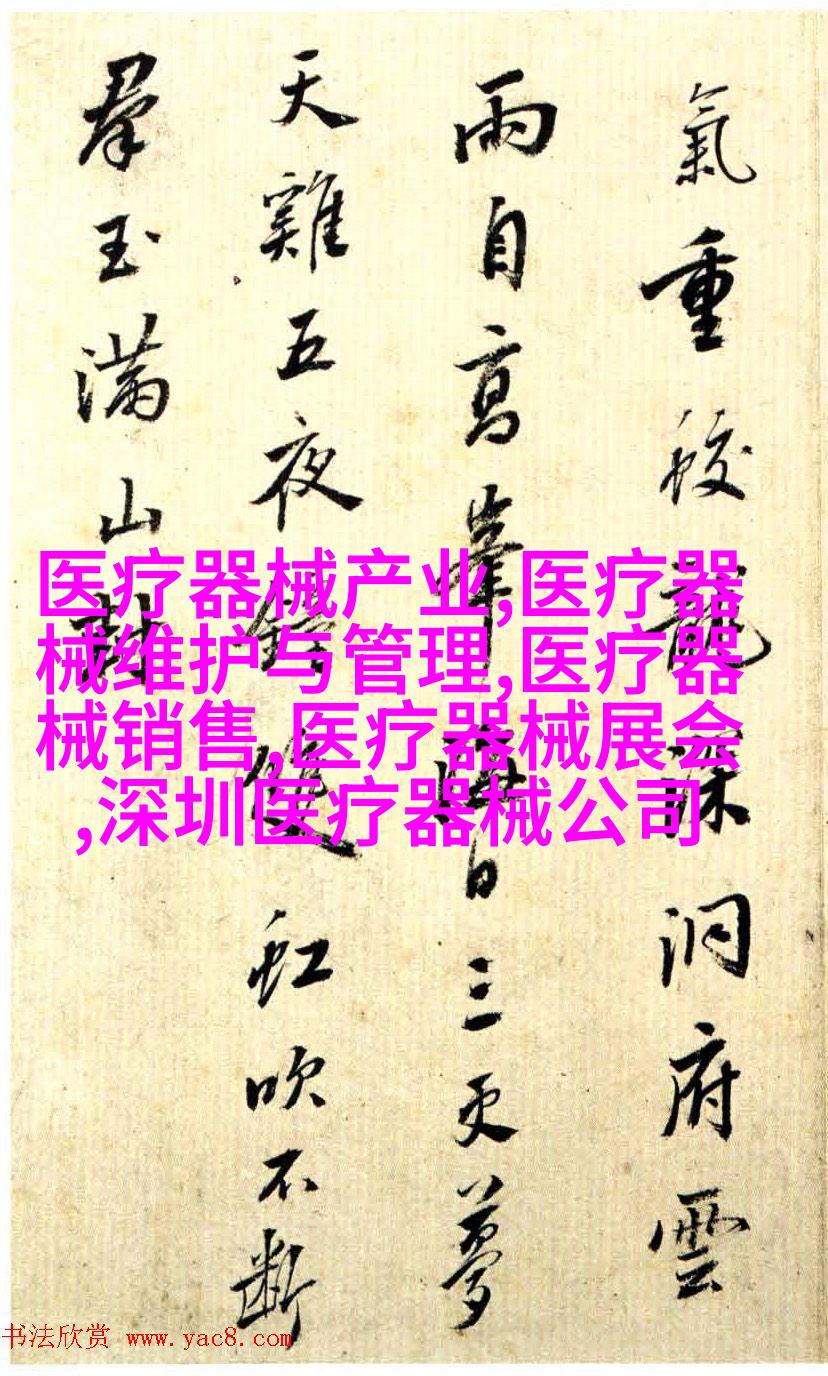 氣重蛟龍深洞府雲
雨自高峯海日三更夢
天雞五夜鐘虹吹不斷
羣玉滿山封
医疗器械产业,医疗器
械维护与管理,医疗器
械销售,医疗器械展会
,深圳医疗器械公司
书法欣赏 www.yac8.com